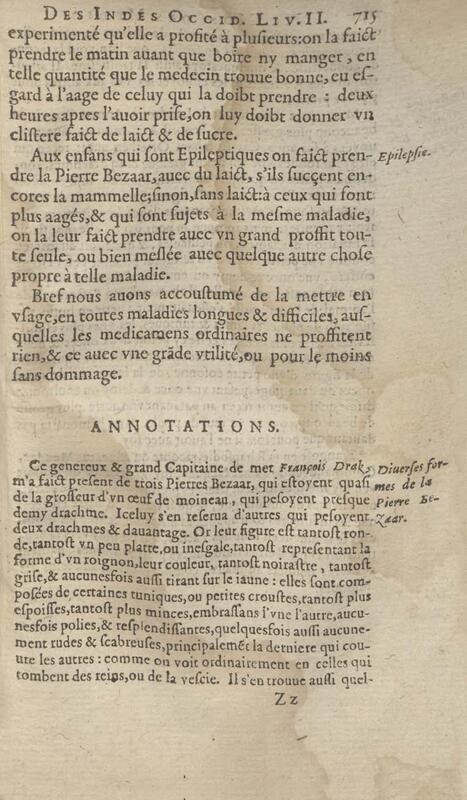 DES INDES OCCID. LIV. II. 715
experimenté qu'elle a profité à plusieurs: on la faict
prendre le matin auant que boire ny manger, en
telle quantité que le medecin trouue bonne, eu es-
gard à l'aage de celuy qui la doibt prendre : deux
heures apres l'auoir prise, on luy doibt donner vn
clistere faict de laict & de sucre.
Aux enfans qui sont Epileptiques on faict pren-
Epilepsie.
dre la Pierre Bezaar, auec du laict, s'ils succent en-
cores la mammelle; sinon, sans laict: à ceux qui sont
plus aagés, & qui sont sujets à la mesme maladie,
on la leur faict prendre auec vn grand proffit tou-
te seule, ou bien meslée auec quelque autre chose
propre à telle maladie.
Bref nous auons accoustumé de la mettre en
vsage, en toutes maladies longues & difficiles, aus-
quelles les medicamens ordinaires ne proffitent
rien, & ce auec vne grãde vtilité, ou pour le moins
sans dommage.
ANNOTATIONS.
Ce genereux & grand Capitaine de mer François Drak,
Diuerses for-
m'a faict present de trois Pierres Bezaar, qui estoyent quasi
mes de la
de la grosseur d'vn œuf de moineau, qui pesoyent presque
Pierre Be-
demy drachme. Iceluy s'en reserua d'autres qui pesoyent
zaar.
deux drachmes & dauantage. Or leur figure est tantost ron-
de, tantost vn peu platte, ou inesgale, tantost representant la
forme d'vn roignon, leur couleur, tantost noirastre, tantost
grise, & aucunesfois aussi tirant sur le iaune : elles sont com-
posées de certaines tuniques, ou petites croustes, tantost plus
espoisses, tantost plus minces, embrassans l'vne l'autre, aucu-
nesfois polies, & resplendissantes, quelquesfois aussi aucune-
ment rudes & scabreuses, principalemẽt la derniere qui cou-
ure les autres : comme on voit ordinairement en celles qui
tombent des reins, ou de la vescie. Il s'en trouue aussi quel-
Zz